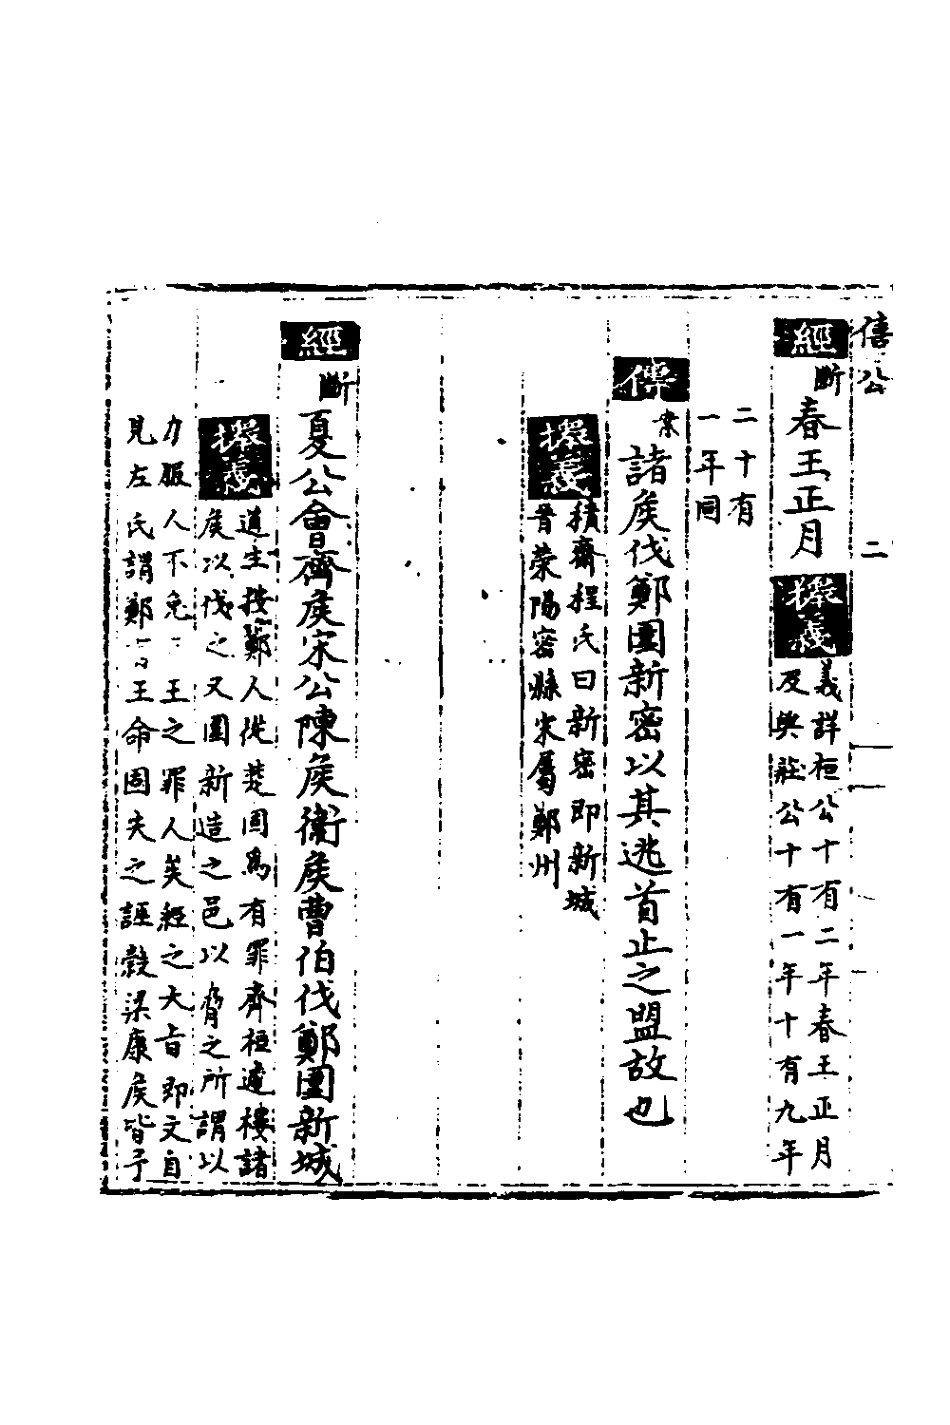 僖公 二
經 斷 春王正月 探義
義詳桓公十有二年春王正月
及與莊公十有一年十有九年
二十有
一年同
傳 案 諸矦伐鄭圍新密以其逃首止之盟故也
探義
積齋程氏曰新密即新城
晉荥陽密縣宋屬鄭州
經 斷 夏公會齊矦宋公陳矦衛矦曹伯伐鄭圍新城
探義
道生按鄭人從楚固為有罪齊桓遽摟諸
矦以伐之又圍新造之邑以脅之所謂以
力服人不免 王之罪人矣經之大旨即文自
見左氏謂鄭 王命固失之誣穀梁康矦皆予